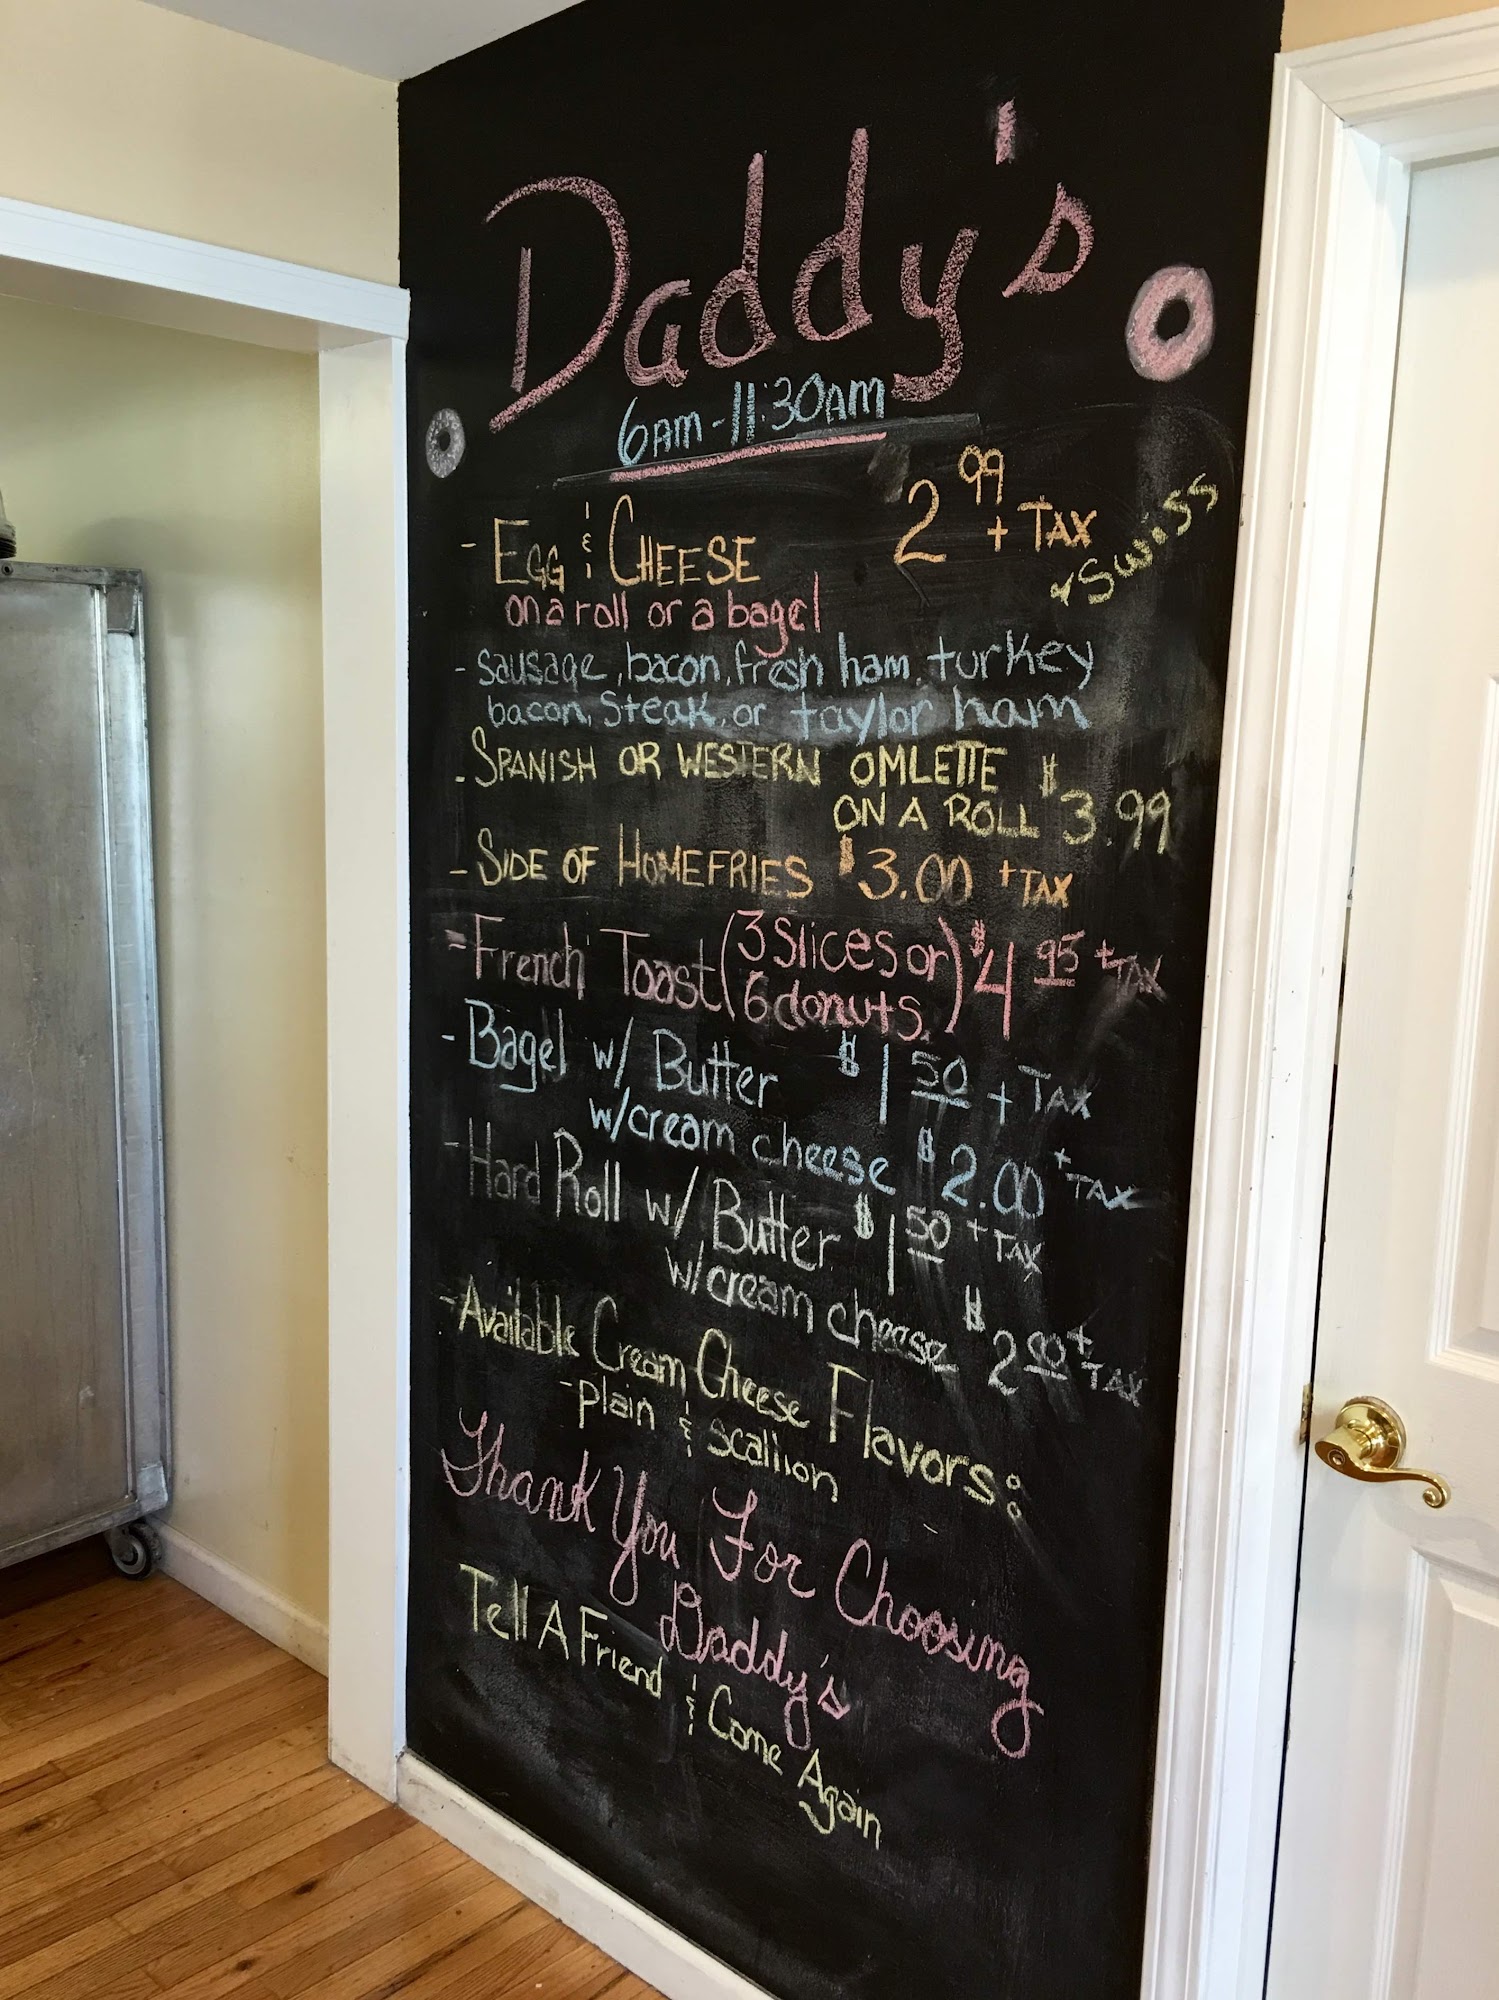 Daddy's
6AM-11:30AM
- EGG & CHEESE 2 99 + TAX
on a roll or a bagel
Swiss
- sausage, bacon, fresh ham, turkey
bacon, Steak, or taylor ham
- SPANISH OR WESTERN OMLETTE
ON A ROLL $3.99
- SIDE OF HOMEFRIES $3.00 + TAX
- French Toast (3 slices or 6 donuts.) $4 95 + TAX
- Bagel w/ Butter $1 50 + TAX
w/cream cheese $2.00 + TAX
- Hard Roll w/ Butter $1 50 + TAX
w/cream cheese $2 00 + TAX
- Available Cream Cheese Flavors:
- plain & scallion
Thank You For Choosing
Daddy's
Tell A Friend & Come Again